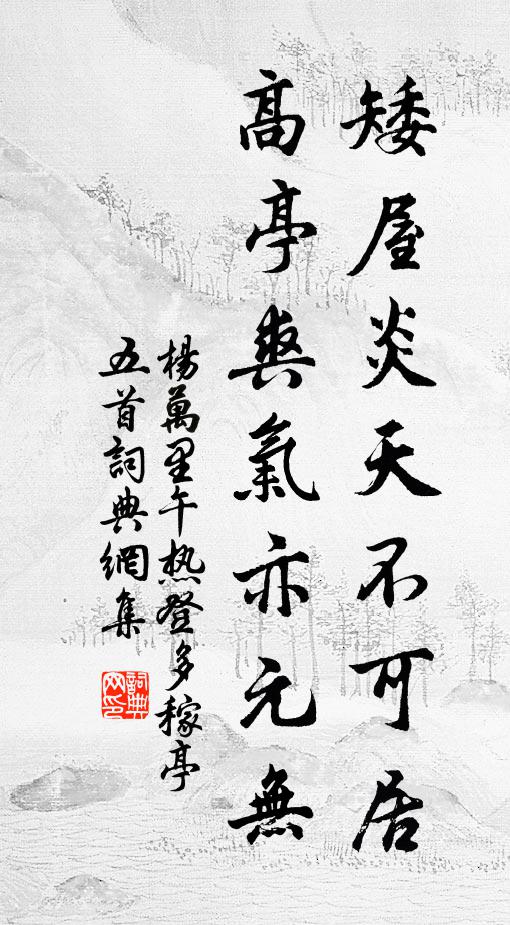 矮屋炎天不可居
高亭爽氣亦元無
楊萬里午热登多稼亭
五首詞典網集
詞典网印